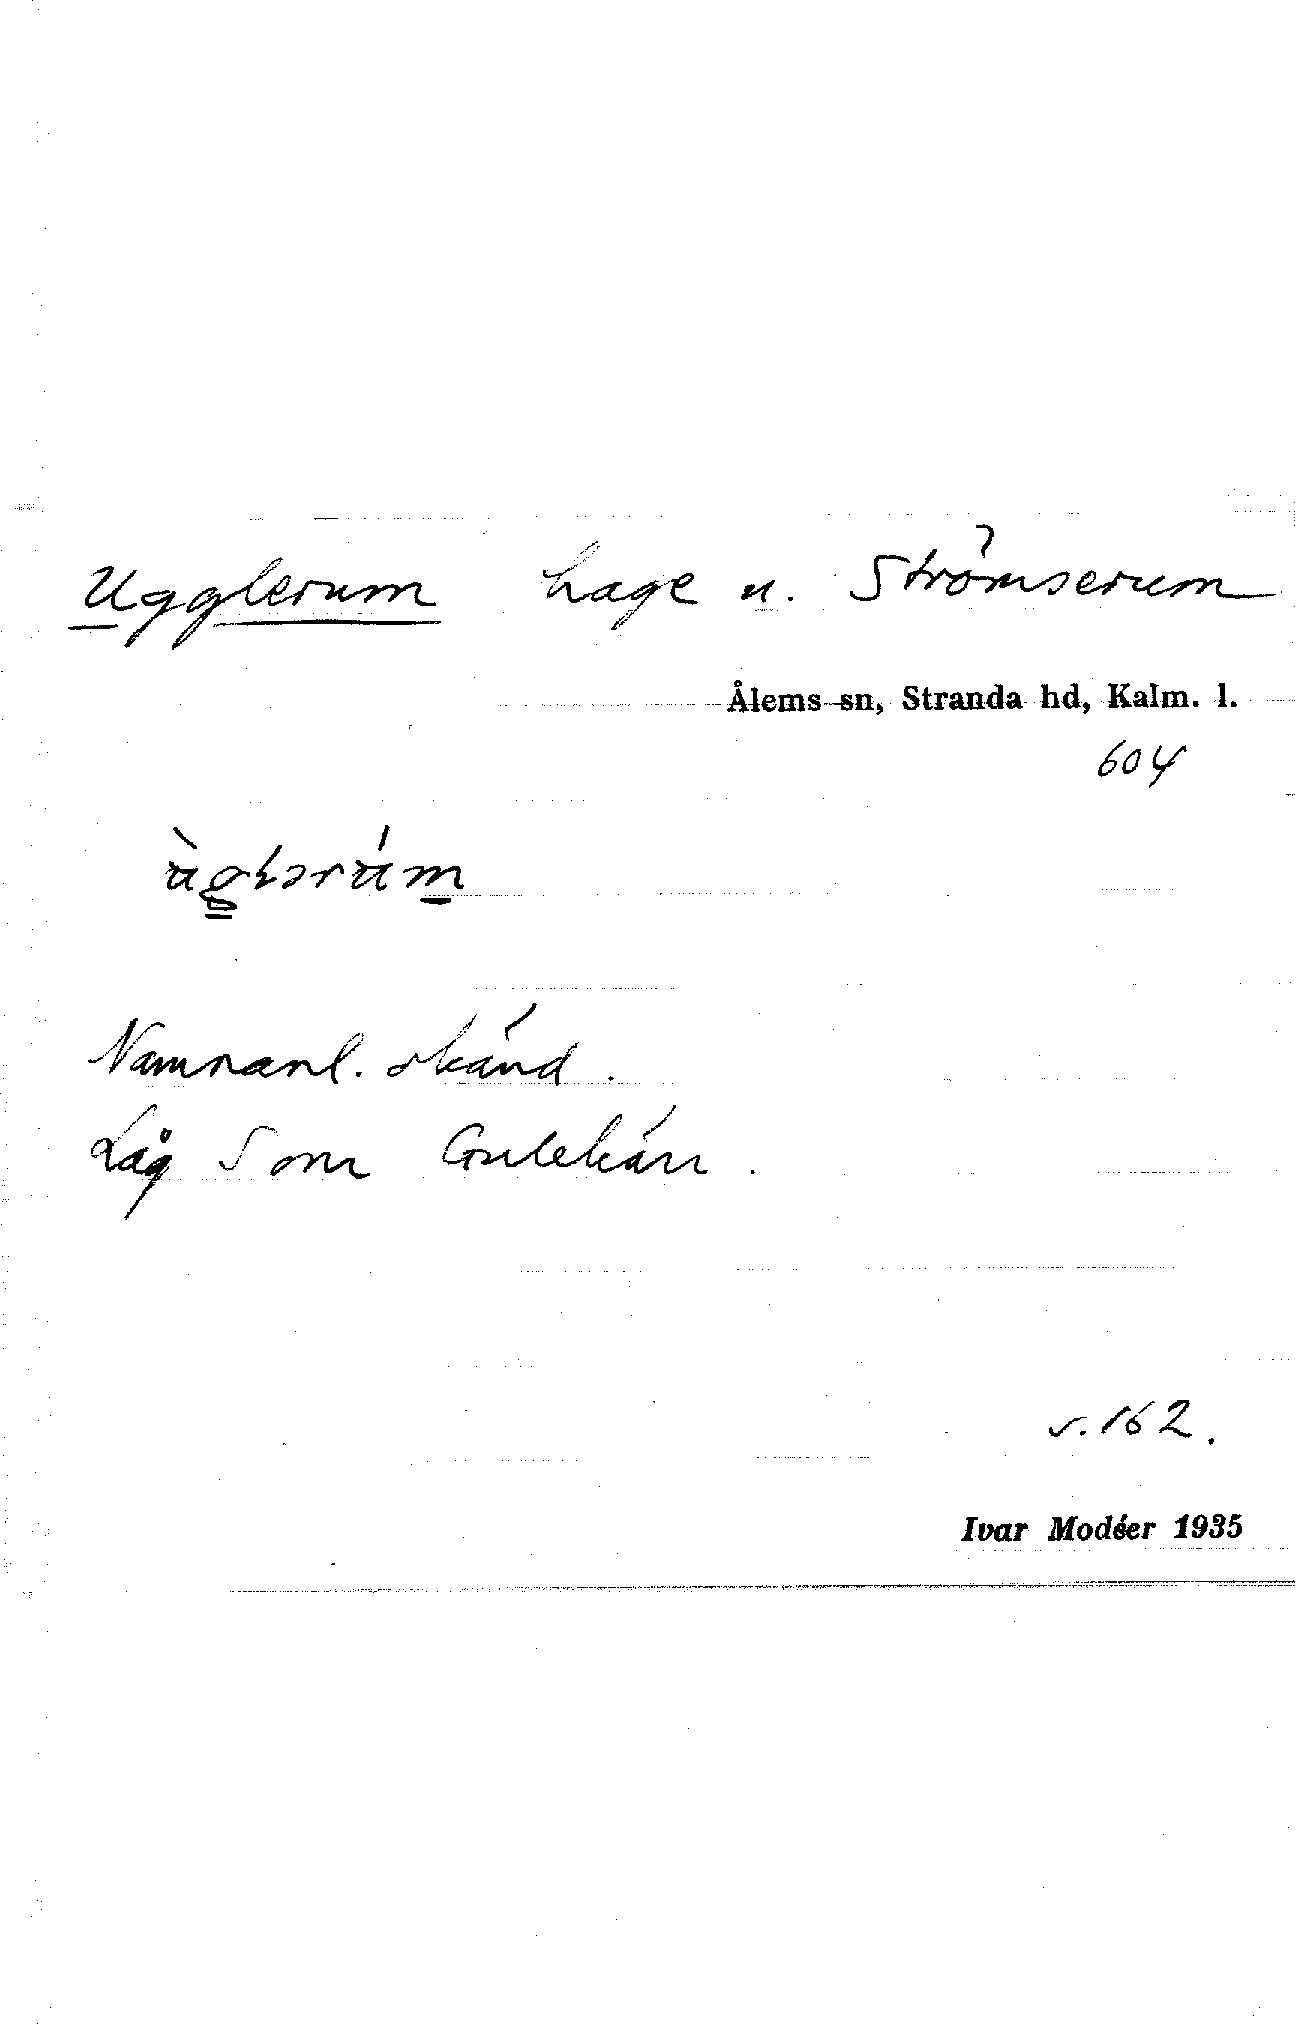 Ugglerum hage u. Strömserum
Ålems sn, Stranda hd, Kalm. l.
604
Namnanl. okänd.
Låg som Gulekärr.
s. 162.
Ivar Modéer 1935